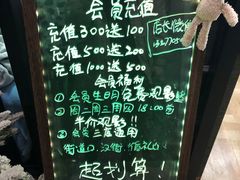 会员充值
充值300送100
充值500送200
充值1000送500
会员福利
①会员生日月免费观影
②周二周三周四18:00前
半价观影!!
③会员三店通用
街道口、汉街、
超划算!
店长微信